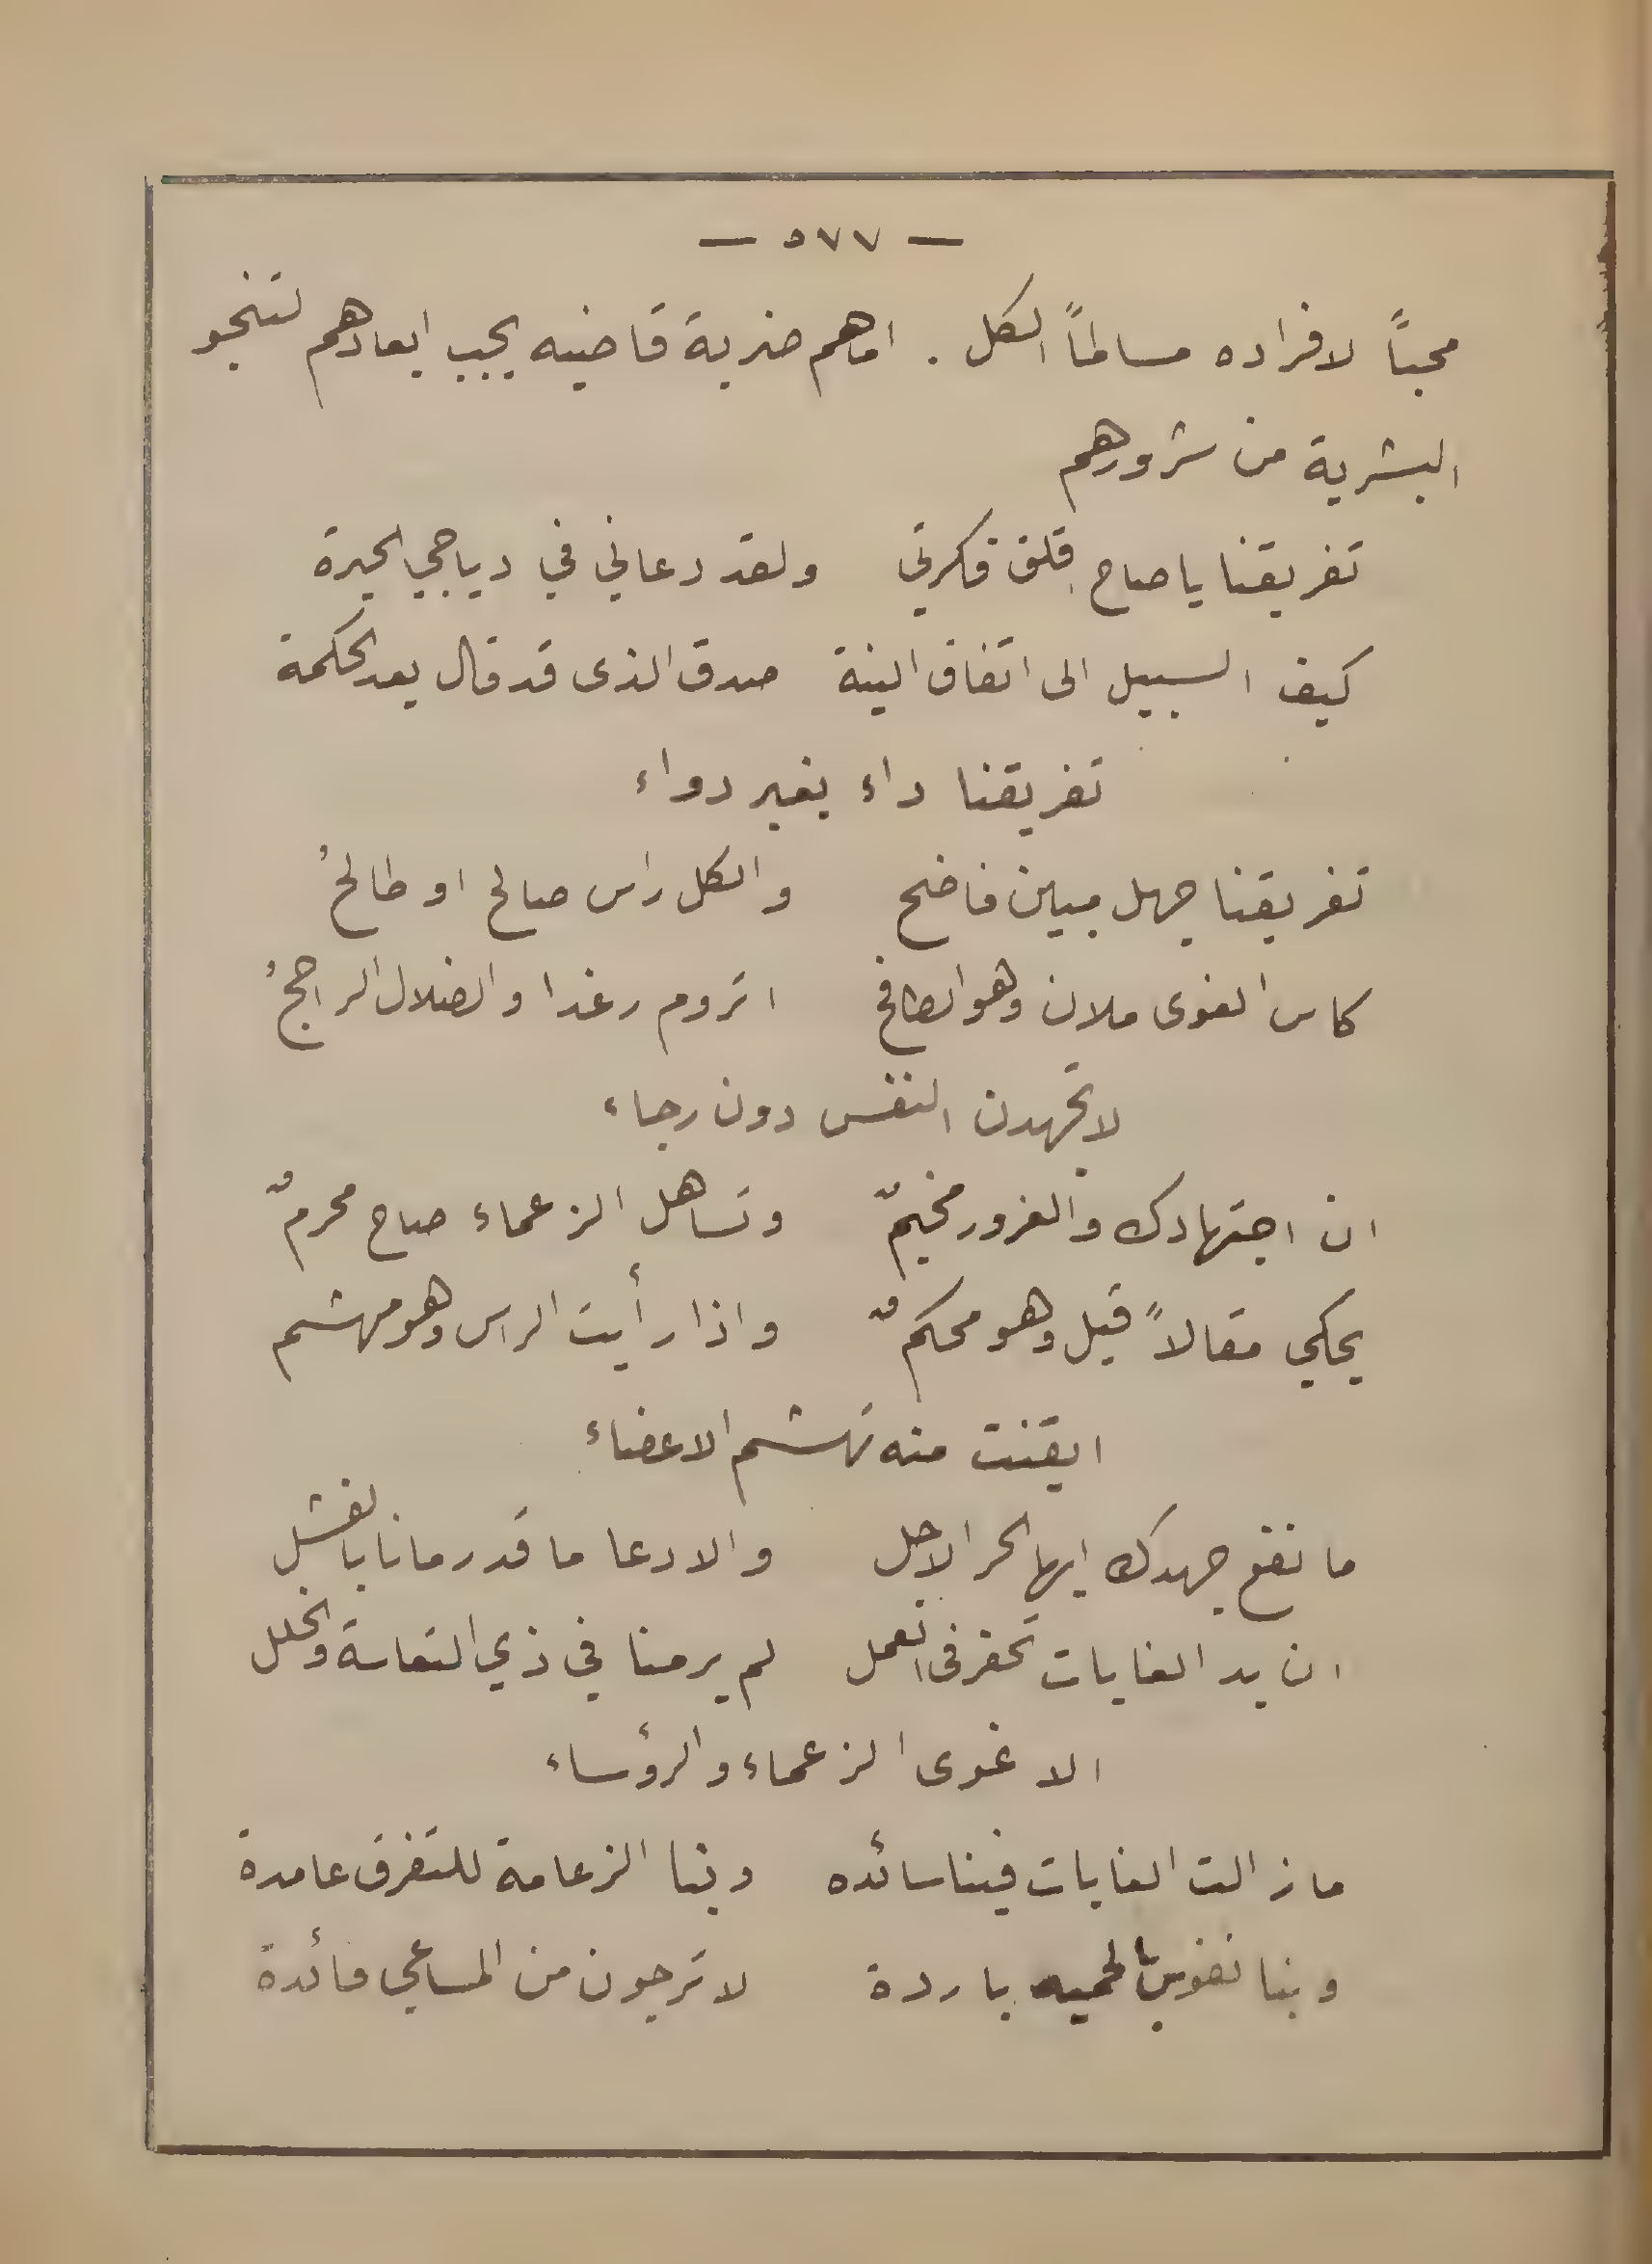 — ٥٧٧ —
محباً لافراده مسالماً الكل . اما هم ضربة قاضيه يجب ابعادهم لتنجو
البشرية من شرورهم
تفريقنا يا صاح اقلق فكرتي ولقد دعاني في دياجي الحيرة
كيف السبيل الى اتفاق النية صدق الذى قد قال بعد الحكمة
تفريقنا داء بغير دواء
تفريقنا جهل مبين فاضح والكل راس صالح او طالحُ
كاس الغوى ملان وهو الطافح اتروم رغدا والضلال الراجحُ
لا تجهدن النفس دون رجاء
ان اجتهادك والغرور مخيمٌ وتساهل الزعماء صاح محرمٌ
يحكي مقالاً قيل وهو محكمٌ واذا رأيت الراس وهو مهشم
ايقنت منه تهشم الاعضاء
ما نفع جهدك ايها الحر الاجل والادعا ما قد رمانا بالفشل
ان يد الغايات تحفر فى العمل لم يرمنا في ذي التعاسة والخلل
الا غوى الزعماء والرؤساء
ما زالت الغايات فينا سائده وبنا الزعامة للتفرق عامدة
وبنا نفوس بالحميه باردة لا ترجون من المساعي فائدة